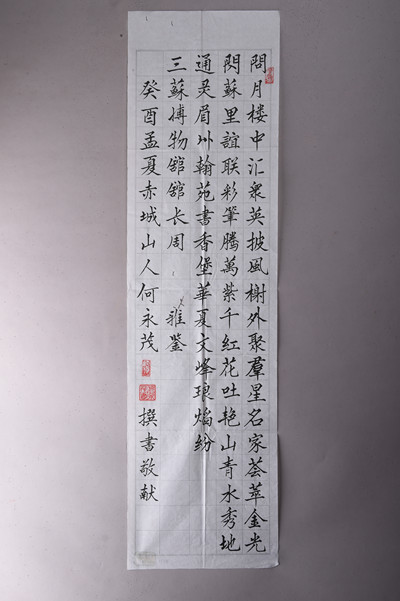 問月楼中汇衆英披風榭外聚羣星名家荟萃金光
閃蘇里誼联彩筆騰萬紫千红花吐艳山青水秀地
通灵眉州翰苑書香堡華夏文峰琅焰纷
三蘇博物舘舘长周 雅鉴
癸酉孟夏赤城山人何永茂 撰書敬献